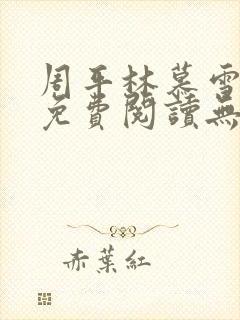 周平林慕雪
免費閱讀無
赤葉紅